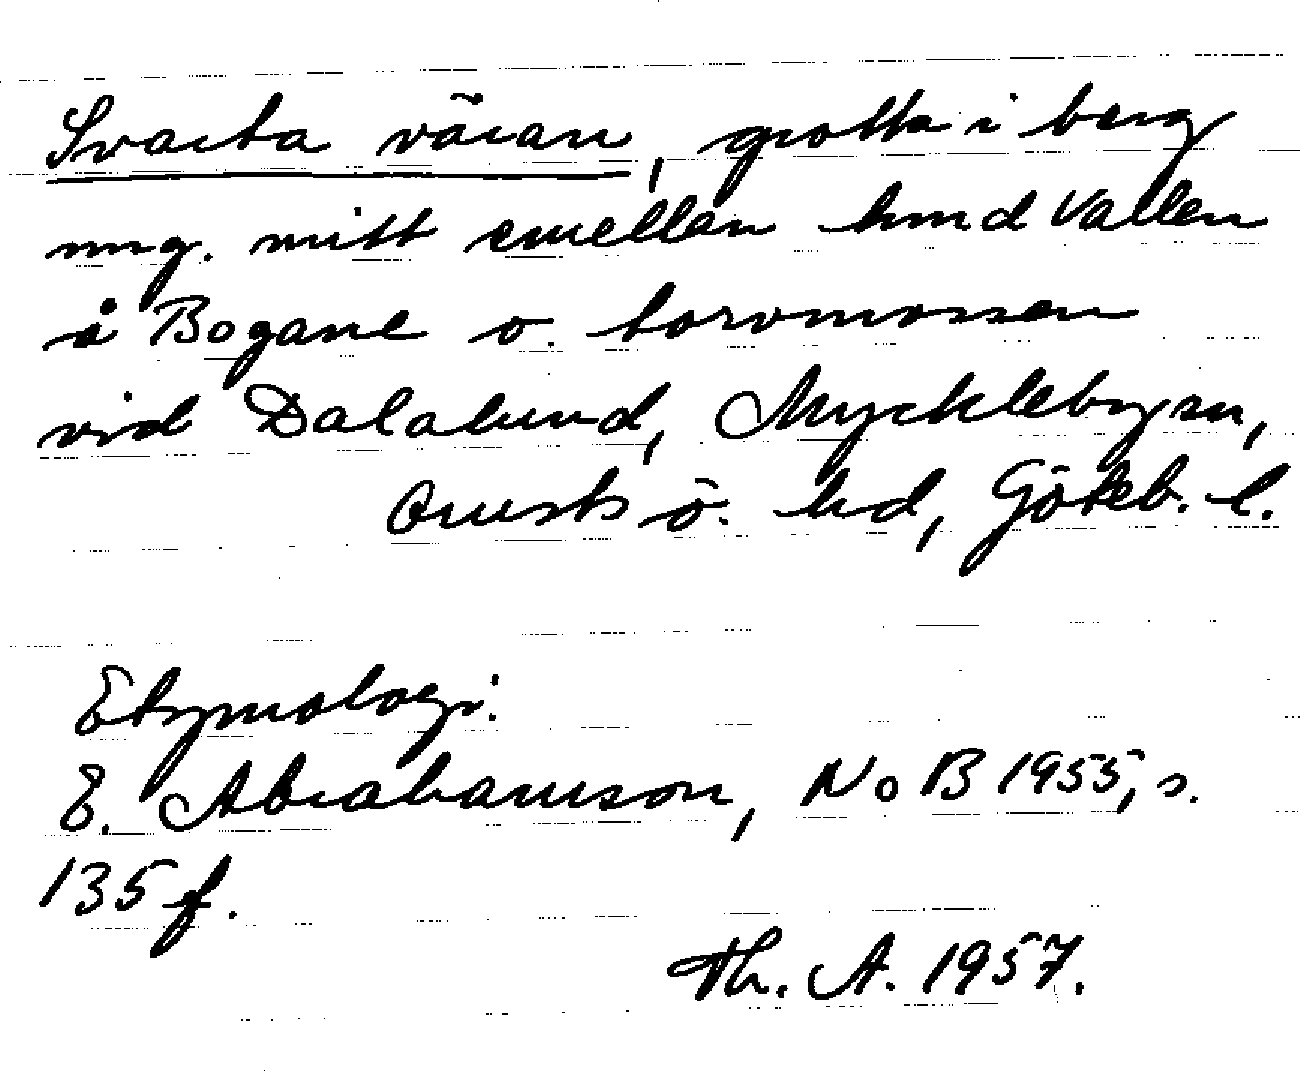 Svarta väran, grotta i berg
ung. mitt emellan hmd Vallen
å Bogane o. torvmossen
vid Dalalund, Myckleby sn,
Orusts ö. hd, Göteb. l.
Etymologi:
E. Abrahamson, NoB 1955, s.
135 f.
Th. A. 1957.